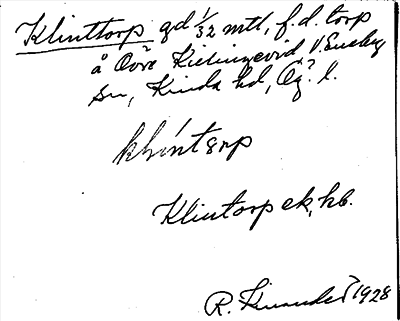 Klinttorp gd 1/32 mtl, f.d. torp
å Övre Kisingevid V. Eneby
sn, Kinda hd, Ög. l.
klintorp
Klintorp ek. kb.
R. 1928